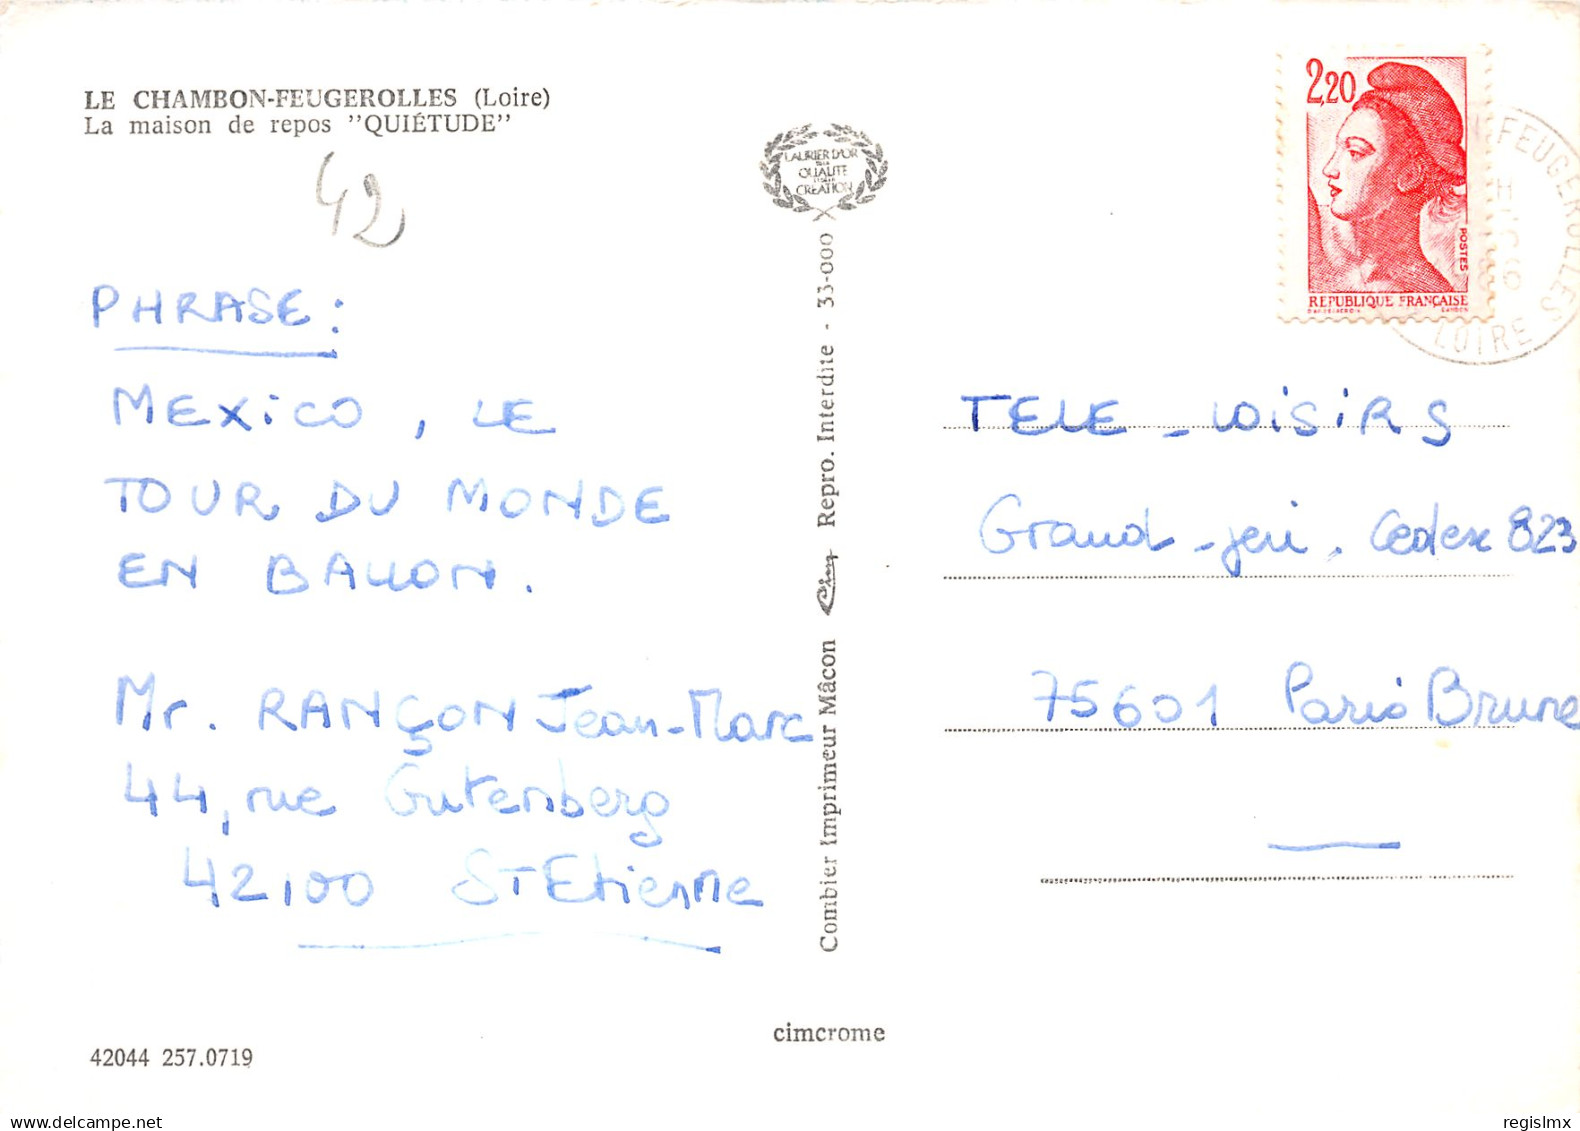 LE CHAMBON-FEUGEROLLES (Loire)
La maison de repos "QUIÉTUDE"
42
PHRASE :
MEXiCO, LE
TOUR DU MONDE
EN BALLON.
Mr. RANÇON Jean-Marc
44, rue Gutenberg
42100 St Etienne
42044 257.0719
LAURIER D'OR
QUALITE
CREATION
Combier Imprimeur Mâcon Cim Repro. Interdite - 33-000
cimcrome
2,20
POSTES
REPUBLIQUE FRANÇAISE
FEUGEROLLES
LOIRE
TELE - LOISIRS
Grand-jeu. Cedex 823
75601 Paris Brune
regislmx